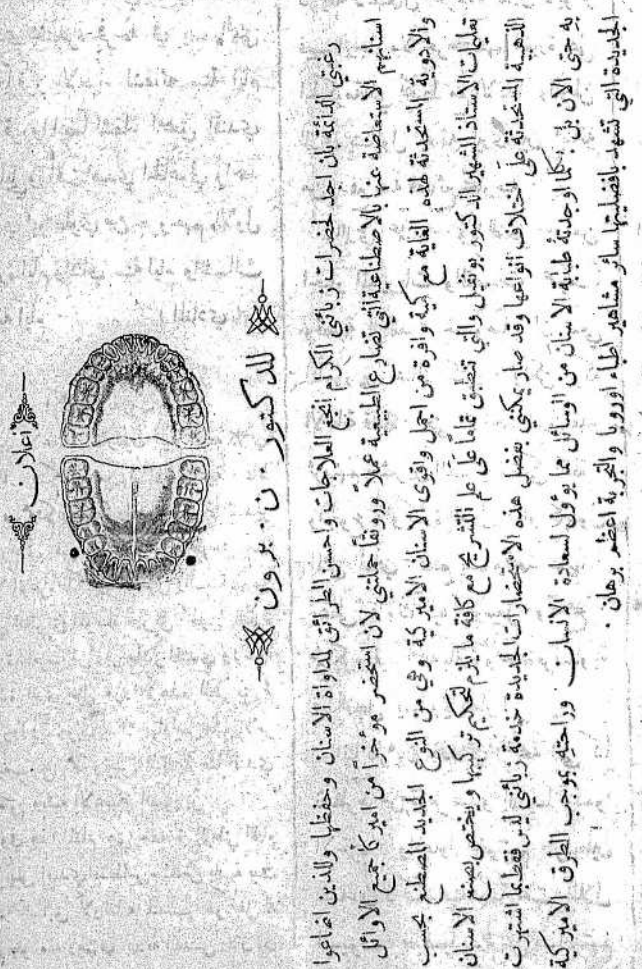 اعلان
للدكتور ٠ ن ٠ برون
رغبتي الدائمة بان اجد لحضرات زبائني الكرام انجع العلاجات واحسن الطرائق لمداواة الاسنان وحفظها وللذين اضاعوا
اسنانهم الاستعاضة عنها بالاصطناعية التي تضارع الطبيعية عملاً ورونقاً حملتني لان استحضر موخراً من اميركا جميع الاوائل
والادوية المستحدثة لهذه الغاية مع كمية وافرة من اجمل واقوى الاسنان الاميركية وهي من النوع الجديد المصطنع بحسب
تعليمات الاستاذ الشهير الدكتور بونفيل والتي تنطبق تماماً على علم التشريح مع كافة ما يلزم لتحكيم تركيبها ويختص بصنع الاسنان
الذهبية المستحدثة على اختلاف انواعها وقد صار يمكنني بفضل هذه الاستحضارات الجديدة خدمة زبائني ليس فقط بما اشتهرت
به حتى الان بل بكلما اوجدته طبابة الاسنان من الوسائل مما يؤول لسعادة الانسان وراحته بموجب الطرق الاميركية
الجديدة التي تشهد بافضليتها سائر مشاهير اطباء اوروبا والتجربة اعظم برهان ٠